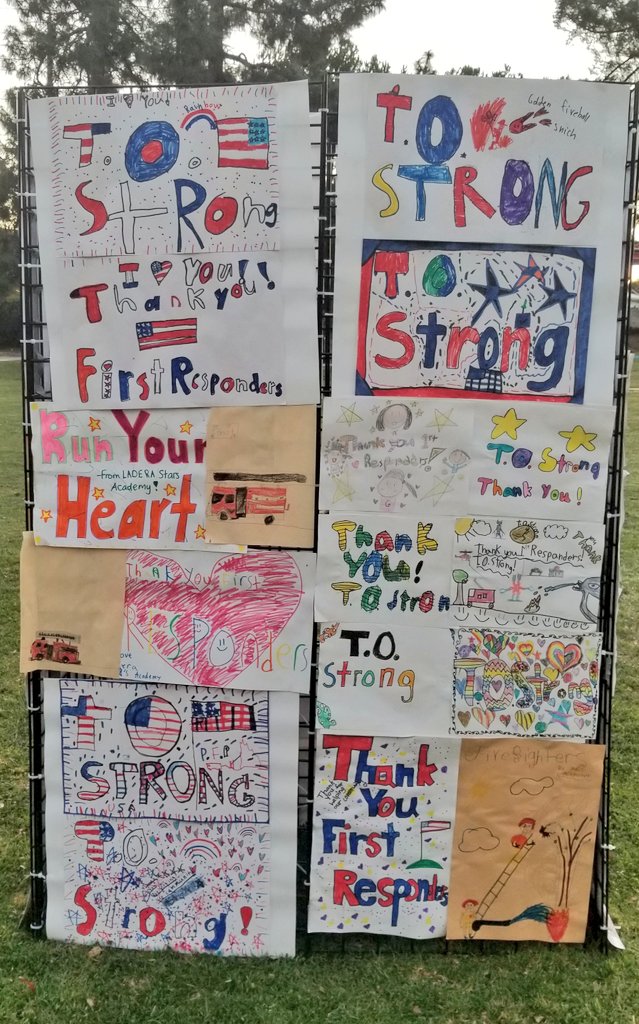 I ♥ You!
Rainbow
T.O.
STRONG
I ♥ You!!
Thank you!
First Responders
T.O.
STRONG
Golden fireball
T.O.
Strong
Run Your
Heart
-from LADERA Stars
Academy!
Thank you 1st
Responders
T.O. Strong
Thank You!
Thank You First
Responders
Love
Academy
THANK
YOU!
T.O Stron
Thank you 1st Responders!
T.O. Strong!
T.O.
Strong
T.O. Strong
T O
STRONG
T O
Strong!
Thank
You
First
Responders
Firefighter